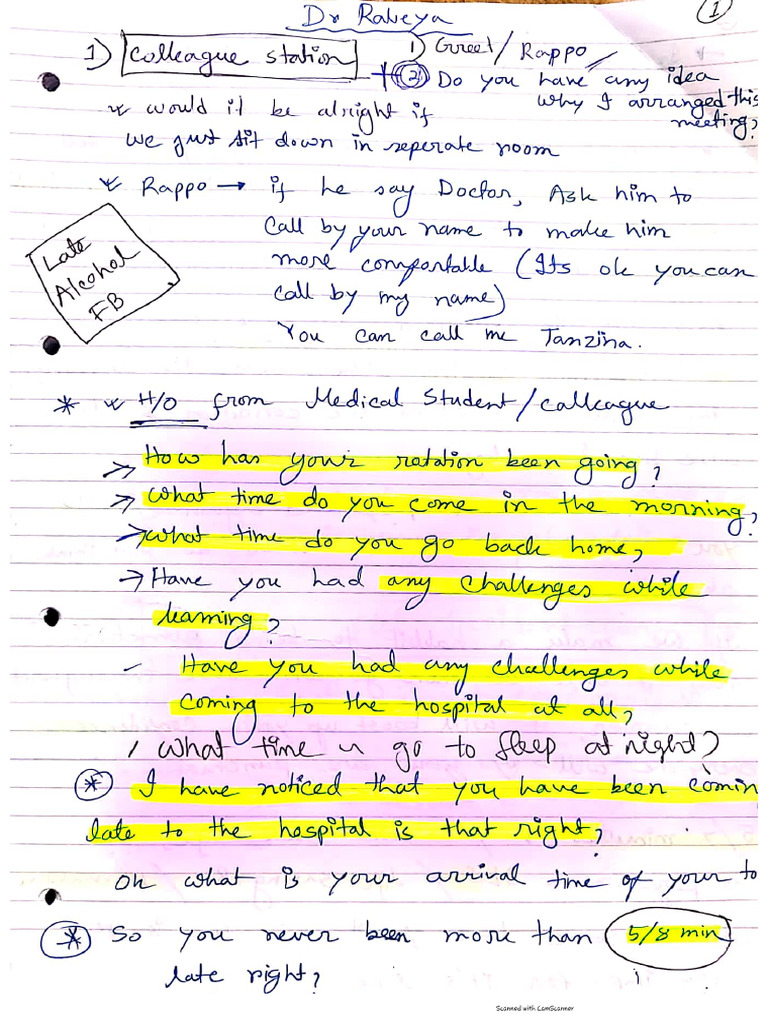 Dr Rabeya
1
1) Colleague station
1) Greet / Rappo
+ 2) Do you have any idea
why I arranged this
meeting?
would it be alright if
we just sit down in seperate room
Rappo → if he say Doctor, Ask him to
call by your name to make him
more comfortable (Its ok you can
call by my name)
You can call me Tanzina.
Late
Alcohol
FB
* H/O from Medical Student/colleague
→ How has your rotation been going?
→ what time do you come in the morning?
→ what time do you go back home,
→ Have you had any challenges while
learning?
- Have you had any challenges while
coming to the hospital at all,
/ what time u go to sleep at night?
* I have noticed that you have been comin
late to the hospital is that right?
Oh what is your arrival time of your to
* So you never been more than 5/8 min
late right?
Scanned with CamScanner